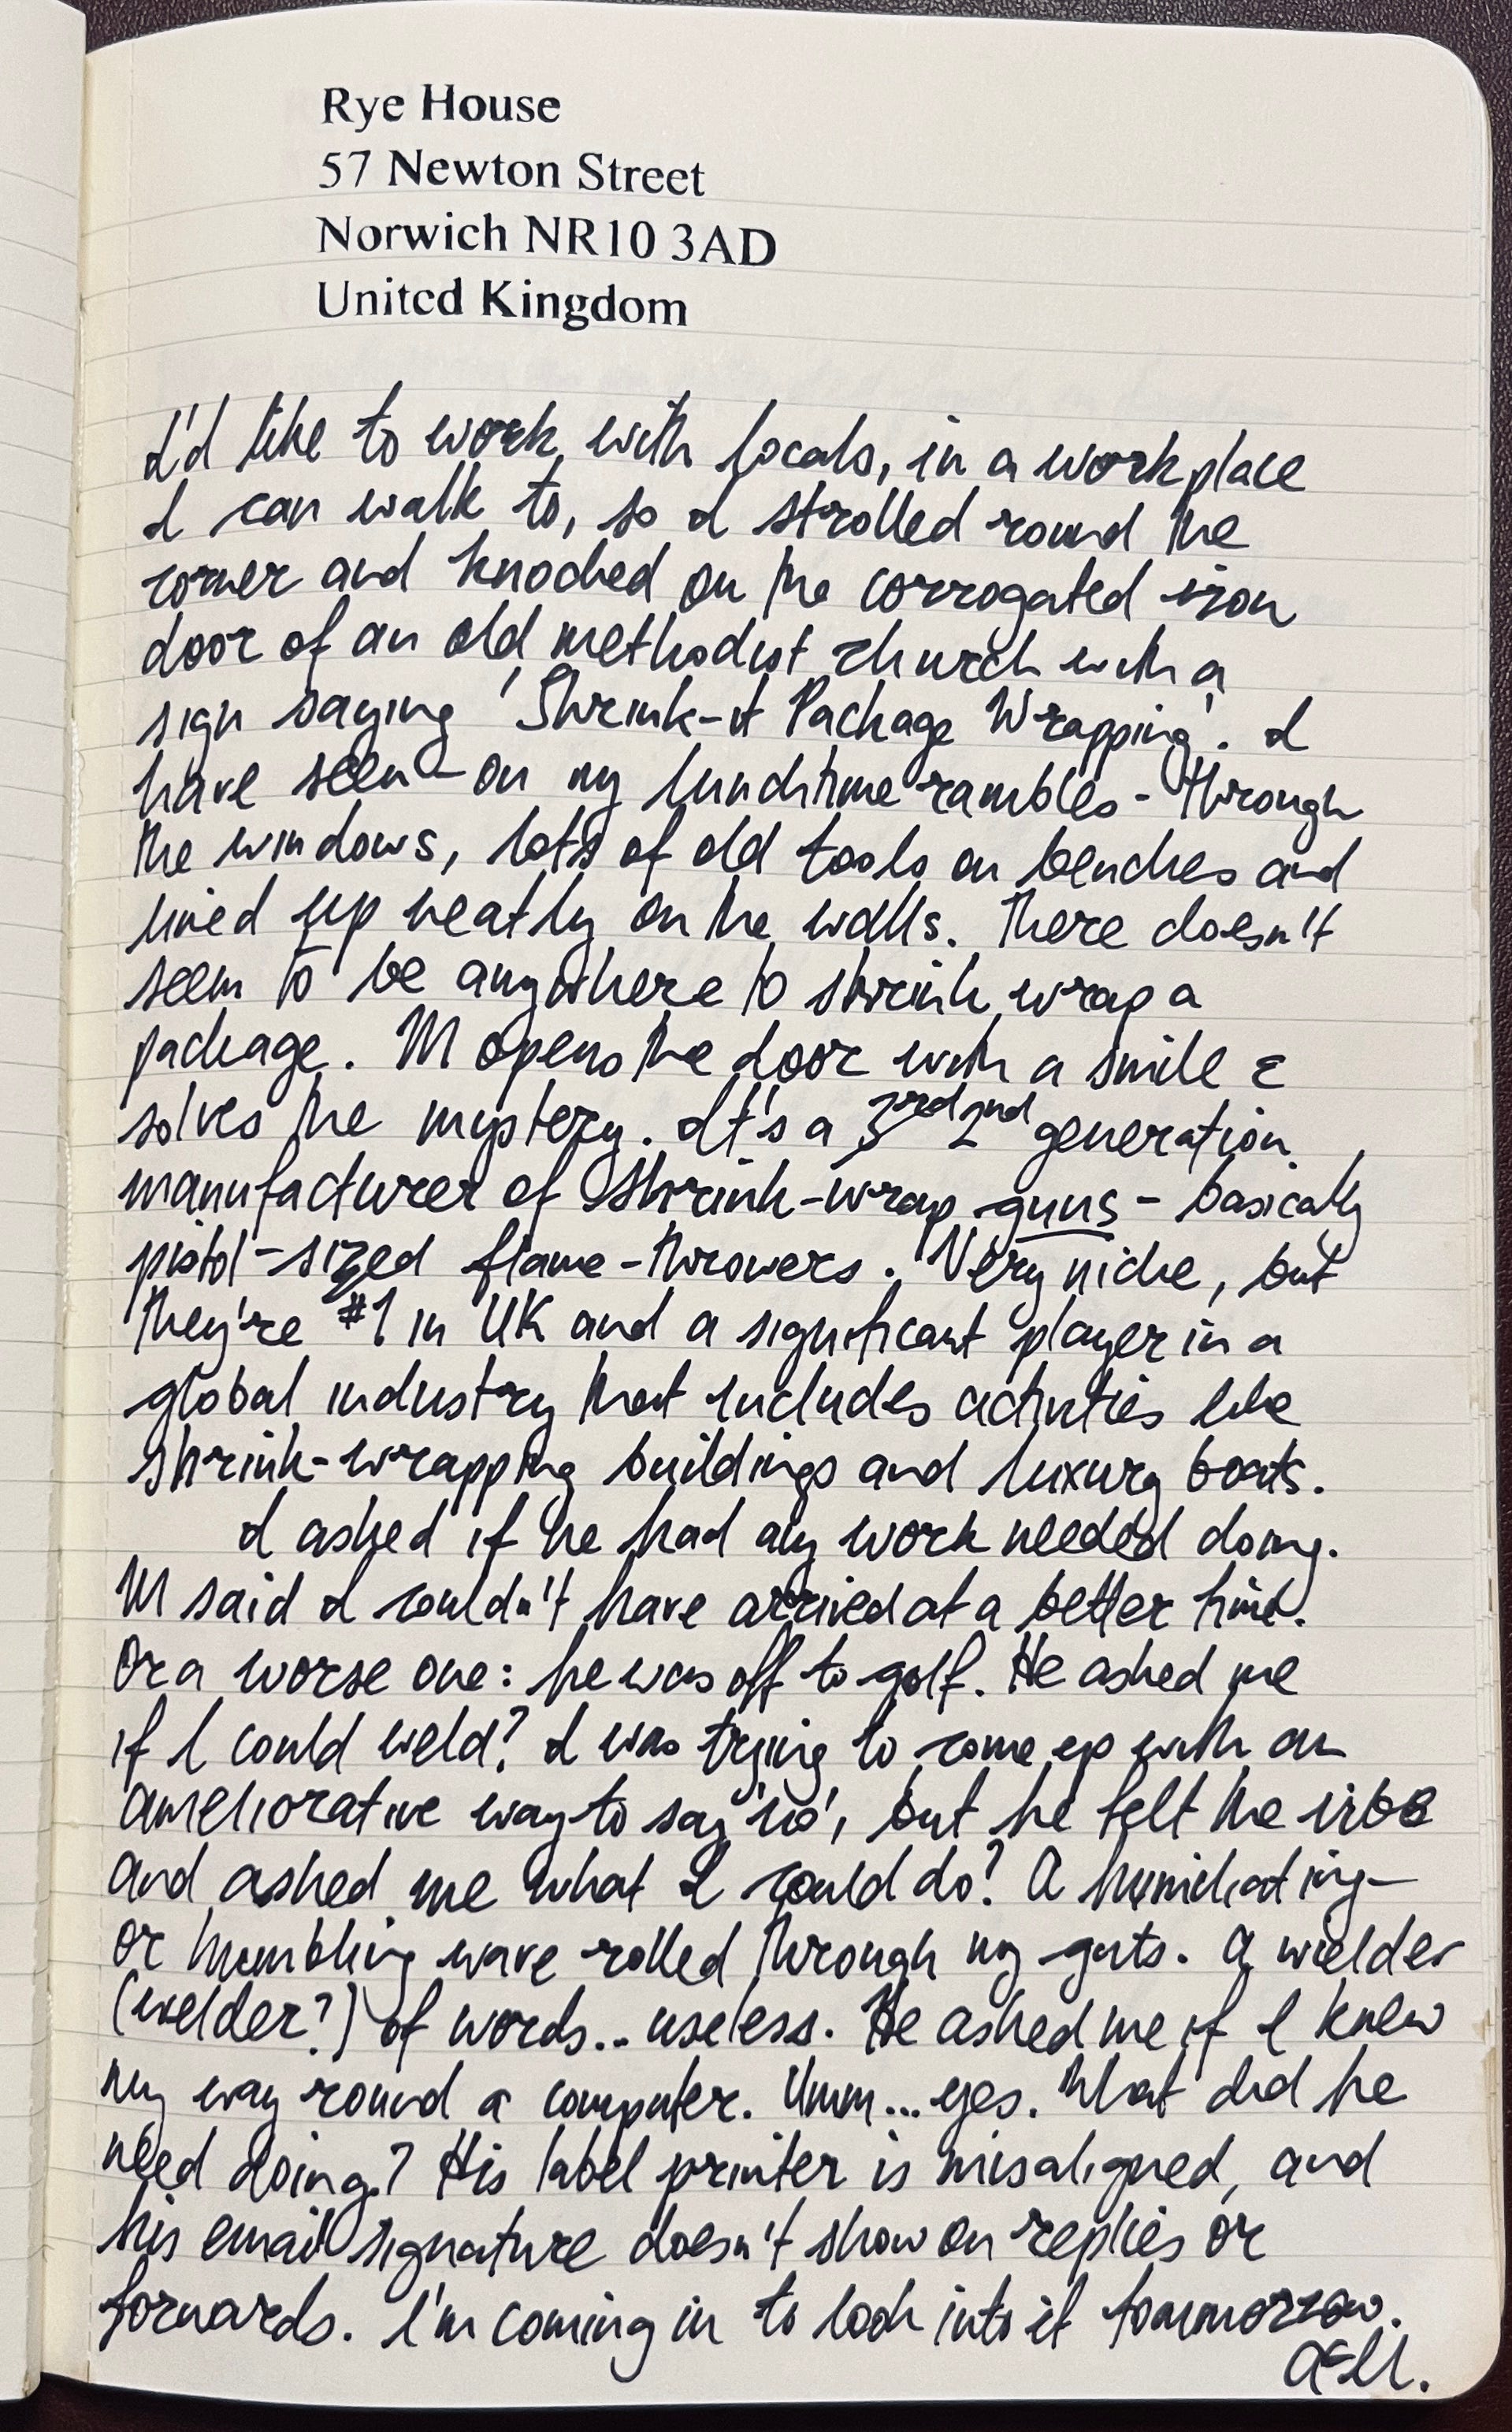 Rye House
57 Newton Street
Norwich NR10 3AD
United Kingdom
I'd like to work, with locals, in a workplace
I can walk to, so I strolled round the
corner and knocked on the corrogated iron
door of an old methodist church with a
sign saying 'Shrink-it Package Wrapping'. I
have seen - on my lunchtime rambles - through
the windows, lots of old tools on benches and
lined up neatly on the walls. There doesn't
seem to be anywhere to shrink wrap a
package. M opens the door with a smile &
solves the mystery. It's a 3rd 2nd generation
manufacturer of shrink-wrap guns - basically
pistol-sized flame-throwers. Very niche, but
they're #1 in UK and a significant player in a
global industry that includes activities like
shrink-wrapping buildings and luxury boats.
I asked if he had any work needed doing.
M said I couldn't have arrived at a better time.
Or a worse one: he was off to golf. He asked me
if I could weld? I was trying to come up with an
ameliorative way to say 'no', but he felt the vibe
and asked me what I could do? A humiliating-
or humbling wave rolled through my guts. A wielder
(welder?) of words... useless. He asked me if I knew
my way round a computer. Umm... yes. What did he
need doing? His label printer is misaligned, and
his email signature doesn't show on replies or
forwards. I'm coming in to look into it tommorrow.